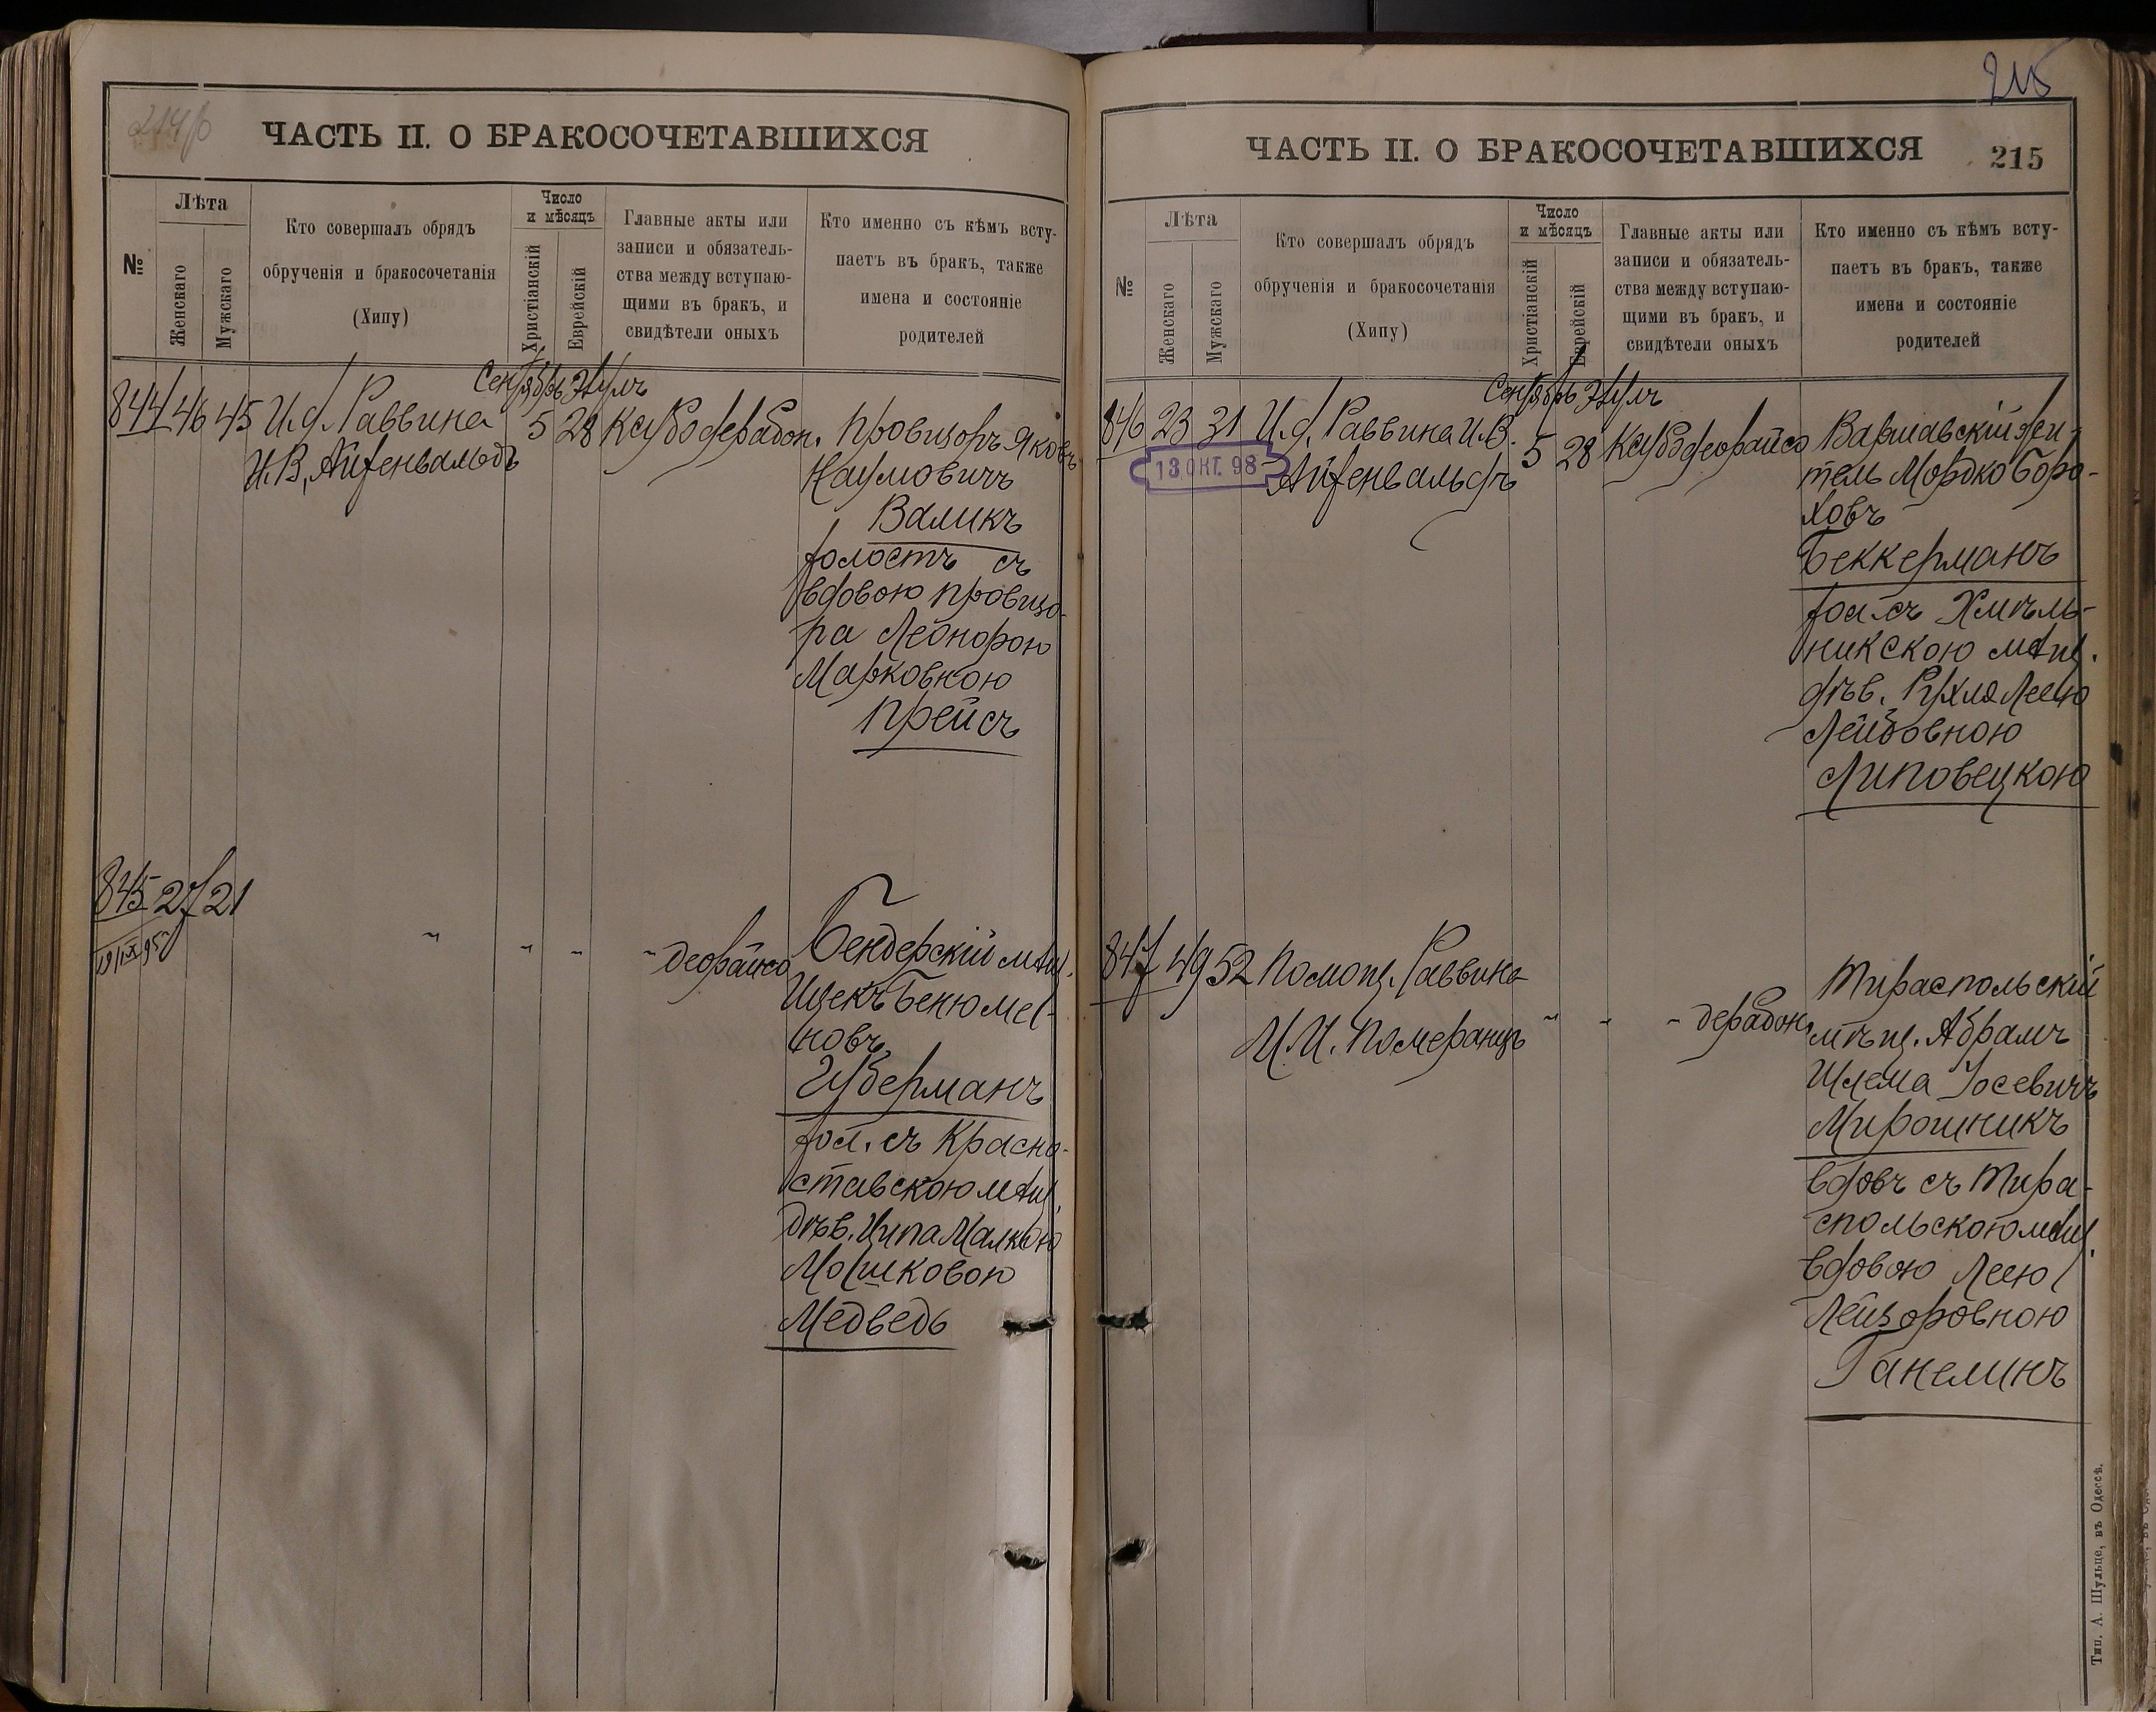 ЧАСТЬ II. О БРАКОСОЧЕТАВШИХСЯ
№
Лѣта
Женскаго
Мужскаго
Кто совершалъ обрядъ
обрученія и бракосочетанія
(Хипу)
Число
и мѣсяцъ
Христіанскій
Еврейскій
Главные акты или
записи и обязатель-
ства между вступаю-
щими въ бракъ, и
свидѣтели оныхъ
Кто именно съ кѣмъ всту-
паетъ въ бракъ, также
имена и состояніе
родителей
Сентябрь Элулъ
844 46 45 И.д. Раввина 5 28 Ксубо дерабон. Провизоръ Яковъ
И.В. Айзенвальдъ Наумовичъ
Валикъ
холостъ съ
вдовою провизо-
ра Леонорою
Марковною
Прейсъ
845 27 21 " " " " деорайсо Бендерскій мѣщ.
Ицекъ Бенюмеи-
новъ
Губерманъ
хол. съ Красно-
ставскою мѣщ.
дѣв. Ципа Малкою
Мошковою
Медведь
215
ЧАСТЬ II. О БРАКОСОЧЕТАВШИХСЯ 215
№
Лѣта
Женскаго
Мужскаго
Кто совершалъ обрядъ
обрученія и бракосочетанія
(Хипу)
Число
и мѣсяцъ
Христіанскій
Еврейскій
Главные акты или
записи и обязатель-
ства между вступаю-
щими въ бракъ, и
свидѣтели оныхъ
Кто именно съ кѣмъ всту-
паетъ въ бракъ, также
имена и состояніе
родителей
Сентябрь Элулъ
846 23 31 И.д. Раввина И.В. 5 28 Ксубо деорайсо Варшавскій жи-
13 ОКТ. 98 Айзенвальдъ тель Мордко Боро-
ховъ
Беккерманъ
хол. съ Хмѣль-
никскою мѣщ.
дѣв. Рухля Леею
Лейбовною
Липовецкою
847 49 52 Помощ. Раввина " " " дерабон. Тираспольскій
М.И. Померанцъ мѣщ. Абрамъ
Шлема Іосевичъ
Мирошникъ
вдовъ съ Тира-
спольскою мѣщ.
вдовою Леею
Лейзоровною
Ганелинъ
Тип. А. Шульце, въ Одессѣ.